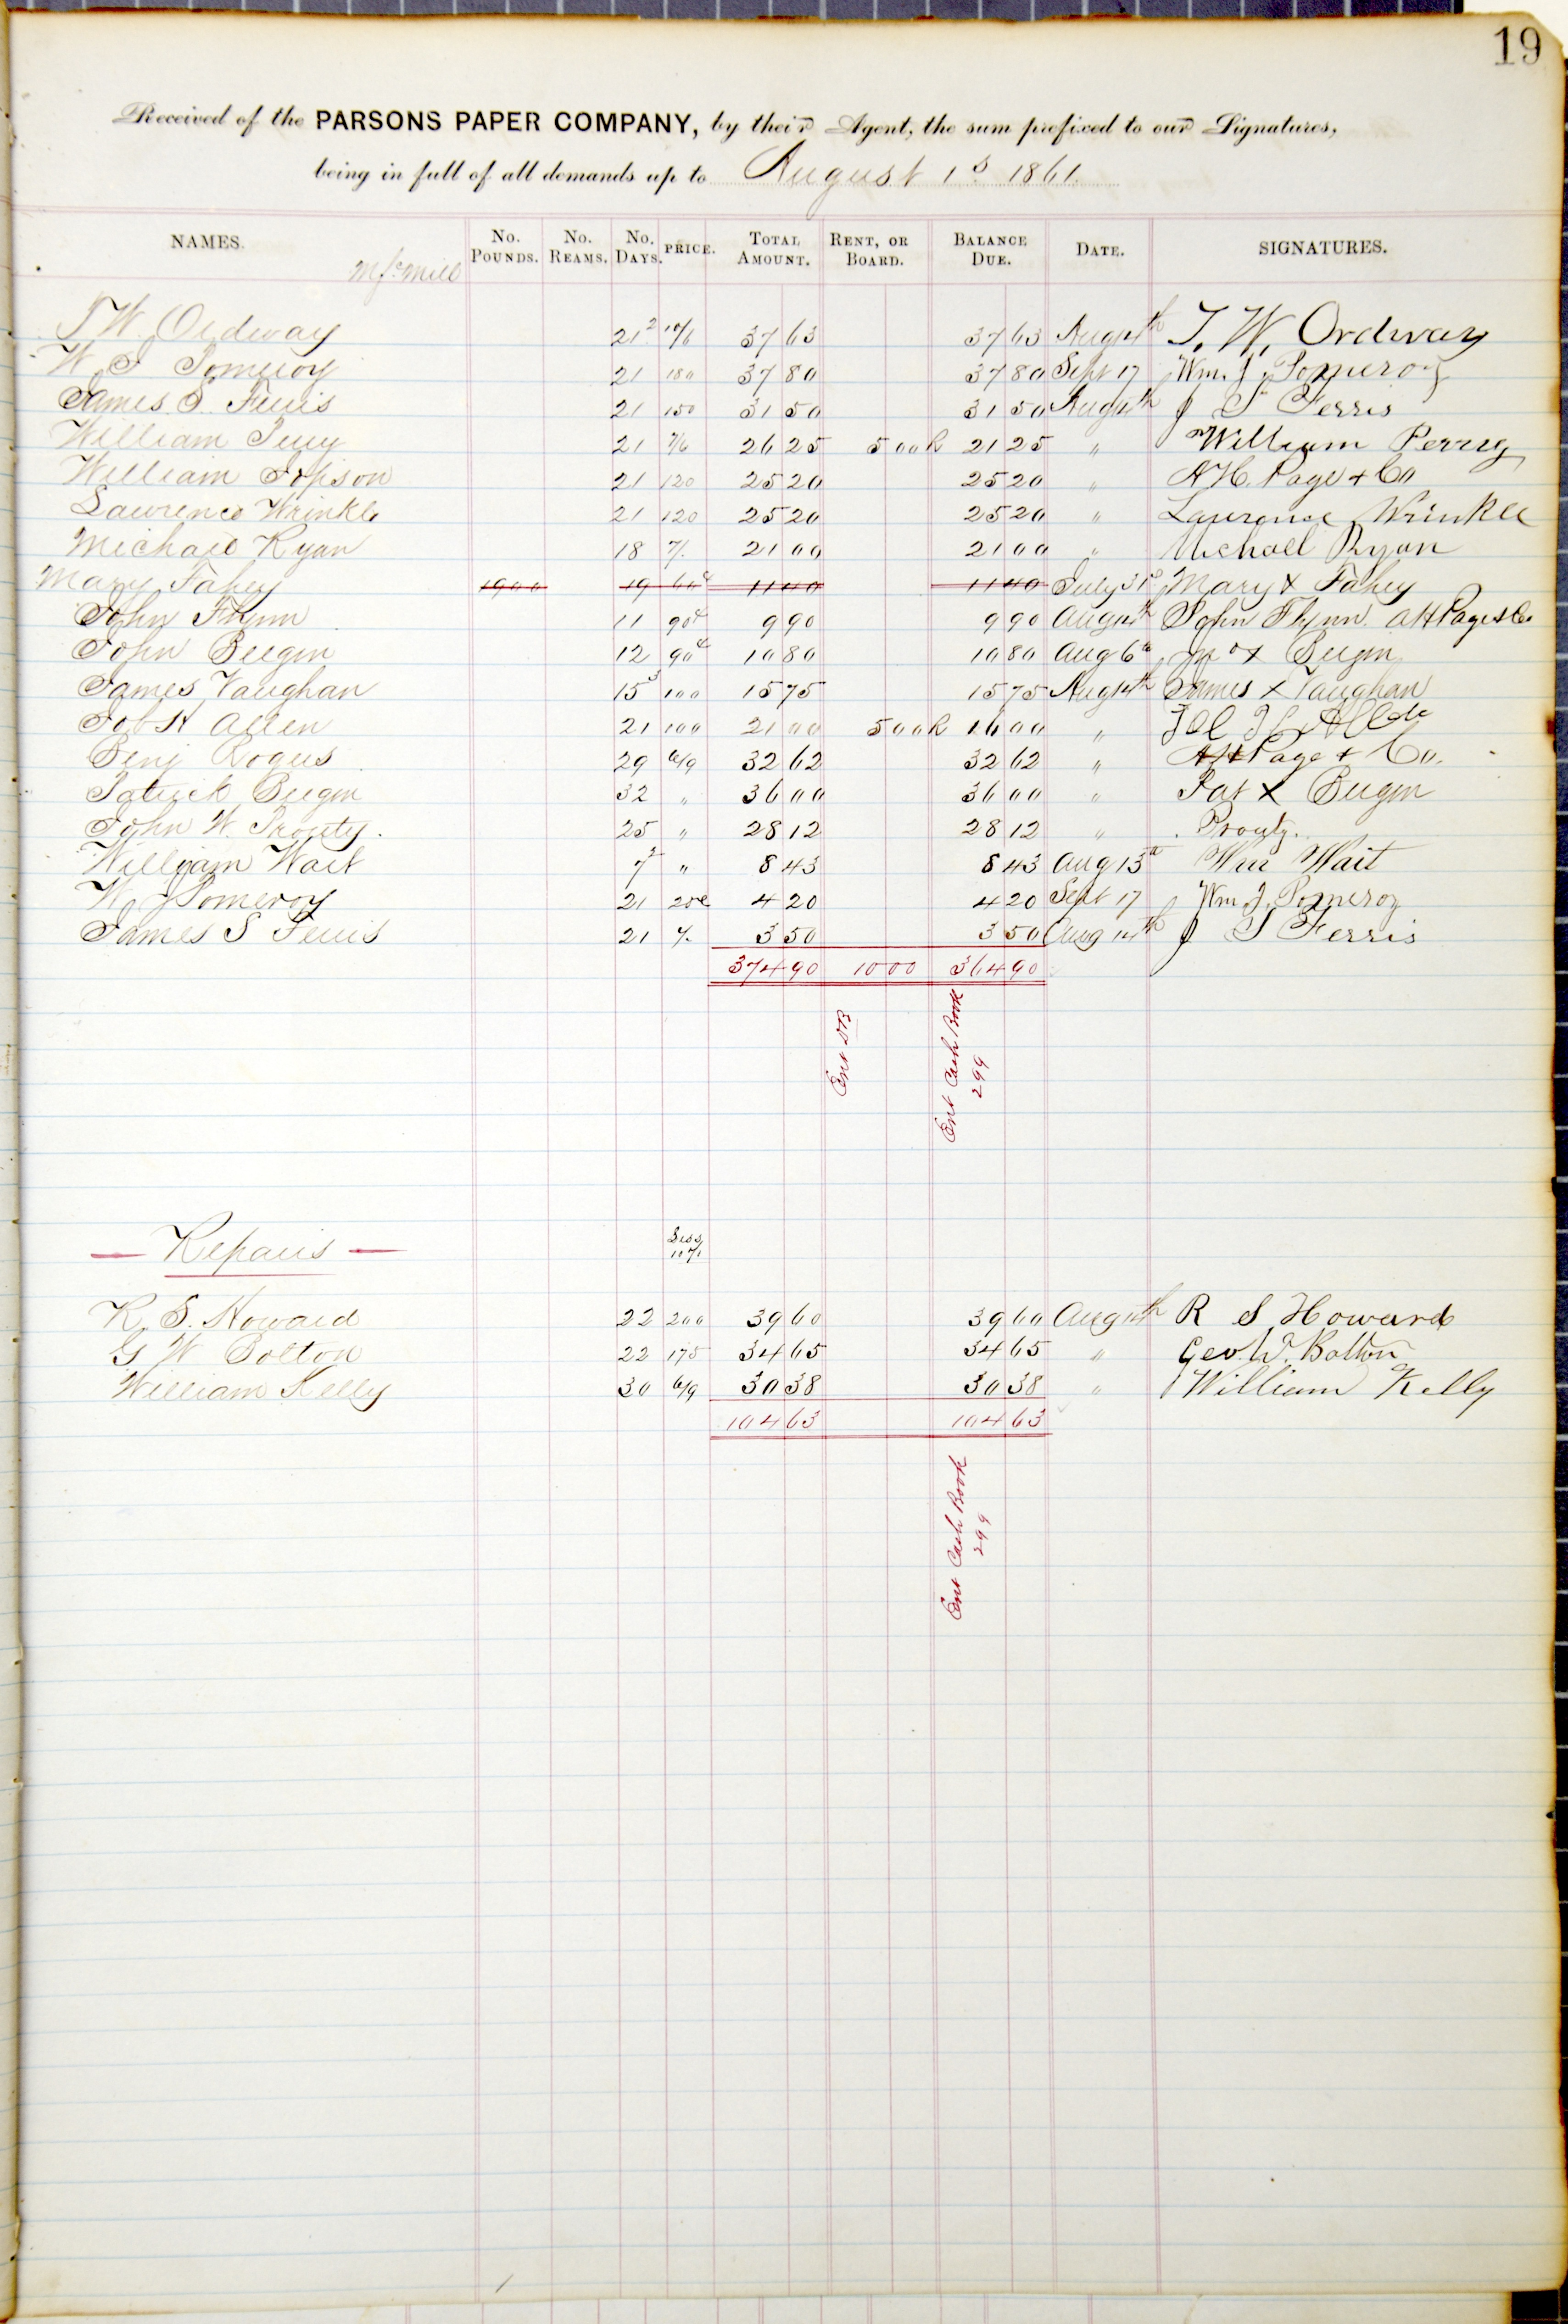 19
Received of the PARSONS PAPER COMPANY, by their Agent, the sum prefixed to our Signatures,
being in full of all demands up to August 1s 1861.
NAMES. No. Pounds. No. Reams. No. Days. PRICE. Total Amount. Rent, or Board. Balance Due. Date. SIGNATURES.
Mill
T W. Ordway 21 2 10/6 37 63 37 63 Aug 14th T. W. Ordway
W. J Pomeroy 21 180 37 80 37 80 Sept 17 Wm. J. Pomeroy
James S. Ferris 21 150 31 50 31 50 Aug 14th J S Ferris
William Perry 21 7/6 26 25 5 00 R 21 25 " William Perry
William Jopson 21 120 25 20 25 20 " A H. Page + Co
Lawrence Wrinkle 21 120 25 20 25 20 " Lawrence Wrinkle
Michael Ryan 18 7/. 21 00 21 00 " Michael Ryan
Mary Fahey 1900 19 60c 11 40 11 40 July 31s Mary X Fahey
John Flynn 11 90c 9 90 9 90 Aug 14th John Flynn. A H Page & Co
John Beegin 12 90c 10 80 10 80 Aug 6th Jno X Beegin
James Vaughan 15 3 100 15 75 15 75 Aug 14th James X Vaughan
Job H Allen 21 100 21 00 5 00 R 16 00 "
Benj Rogers 29 6/9 32 62 32 62 " A H Page + Co.
Patrick Beegin 32 " 36 00 36 00 " Pat X Beegin
John W. Prouty. 25 " 28 12 28 12 " Prouty.
William Wait 7 2 " 8 43 8 43 Aug 13th Wm Wait
W. J Pomeroy 21 20c 4 20 4 20 Sept 17 Wm. J. Pomeroy
James S Ferris 21 1/. 3 50 3 50 Aug 14th J S Ferris
374 90 10 00 364 90
Ent DB
Ent Cash Book
299
— Repairs — Less
R. S. Howard 22 200 39 60 39 60 Aug 14th R S Howard
G W Bolton 22 175 34 65 34 65 " Geo. W. Bolton
William Kelly 30 6/9 30 38 30 38 " William Kelly
104 63 104 63
Ent Cash Book
299